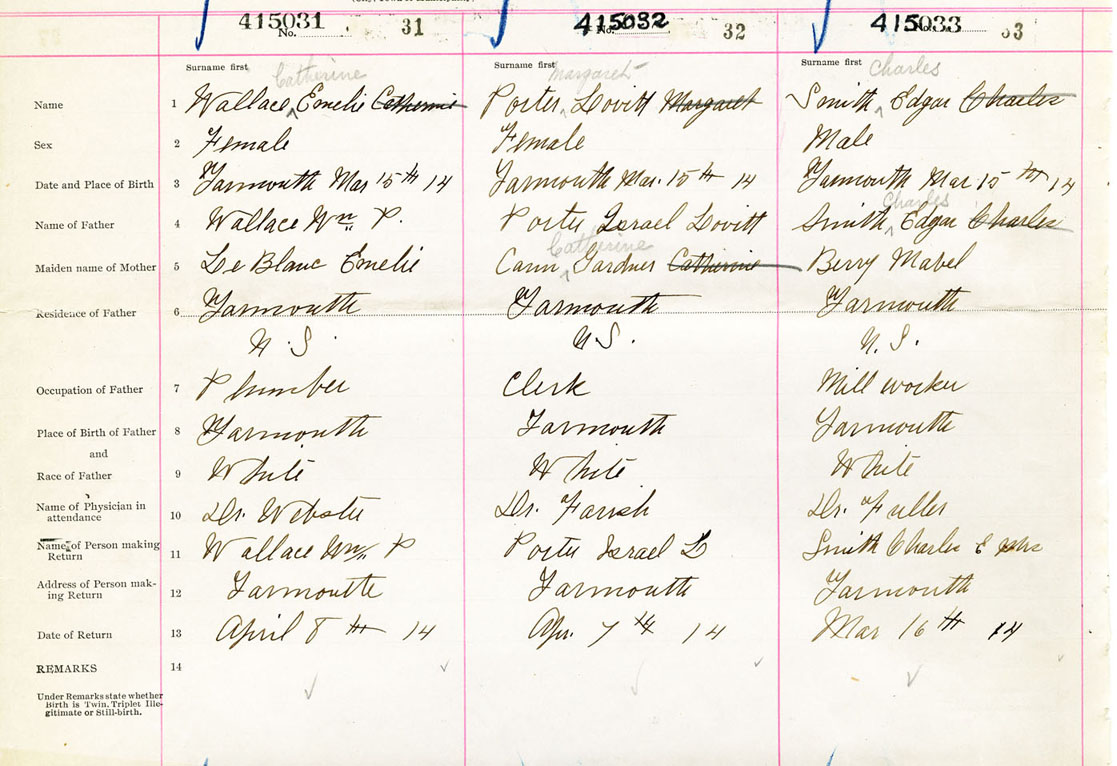 415031 415032 415033
No. 31 No. 32 No. 33
Surname first Catherine Surname first Margaret Surname first Charles
Name 1 Wallace, Emelie Catherine Porter, Lovitt Margaret Smith Edgar Charles
Sex 2 Female Female Male
Date and Place of Birth 3 Yarmouth Mar 15th 14 Yarmouth Mar. 15th 14 Yarmouth Mar 15th 14
Charles
Name of Father 4 Wallace Wm P. Porter Israel Lovitt Smith Edgar Charles
Catherine
Maiden name of Mother 5 Le Blanc Emelie Cann Gardner Catherine Berry Mabel
Residence of Father 6 Yarmouth Yarmouth Yarmouth
N. S. N S. N. S.
Occupation of Father 7 Plumber Clerk Mill worker
Place of Birth of Father 8 Yarmouth Yarmouth Yarmouth
and
Race of Father 9 White White White
Name of Physician in
attendance 10 Dr. Webster Dr. Farish Dr. Fuller
Name of Person making
Return 11 Wallace Wm P Porter Israel L Smith Charles E Mrs
Address of Person mak-
ing Return 12 Yarmouth Yarmouth Yarmouth
Date of Return 13 April 8th 14 Apr. 7th 14 Mar 16th 14
REMARKS 14
Under Remarks state whether
Birth is Twin, Triplet Ille-
gitimate or Still-birth.